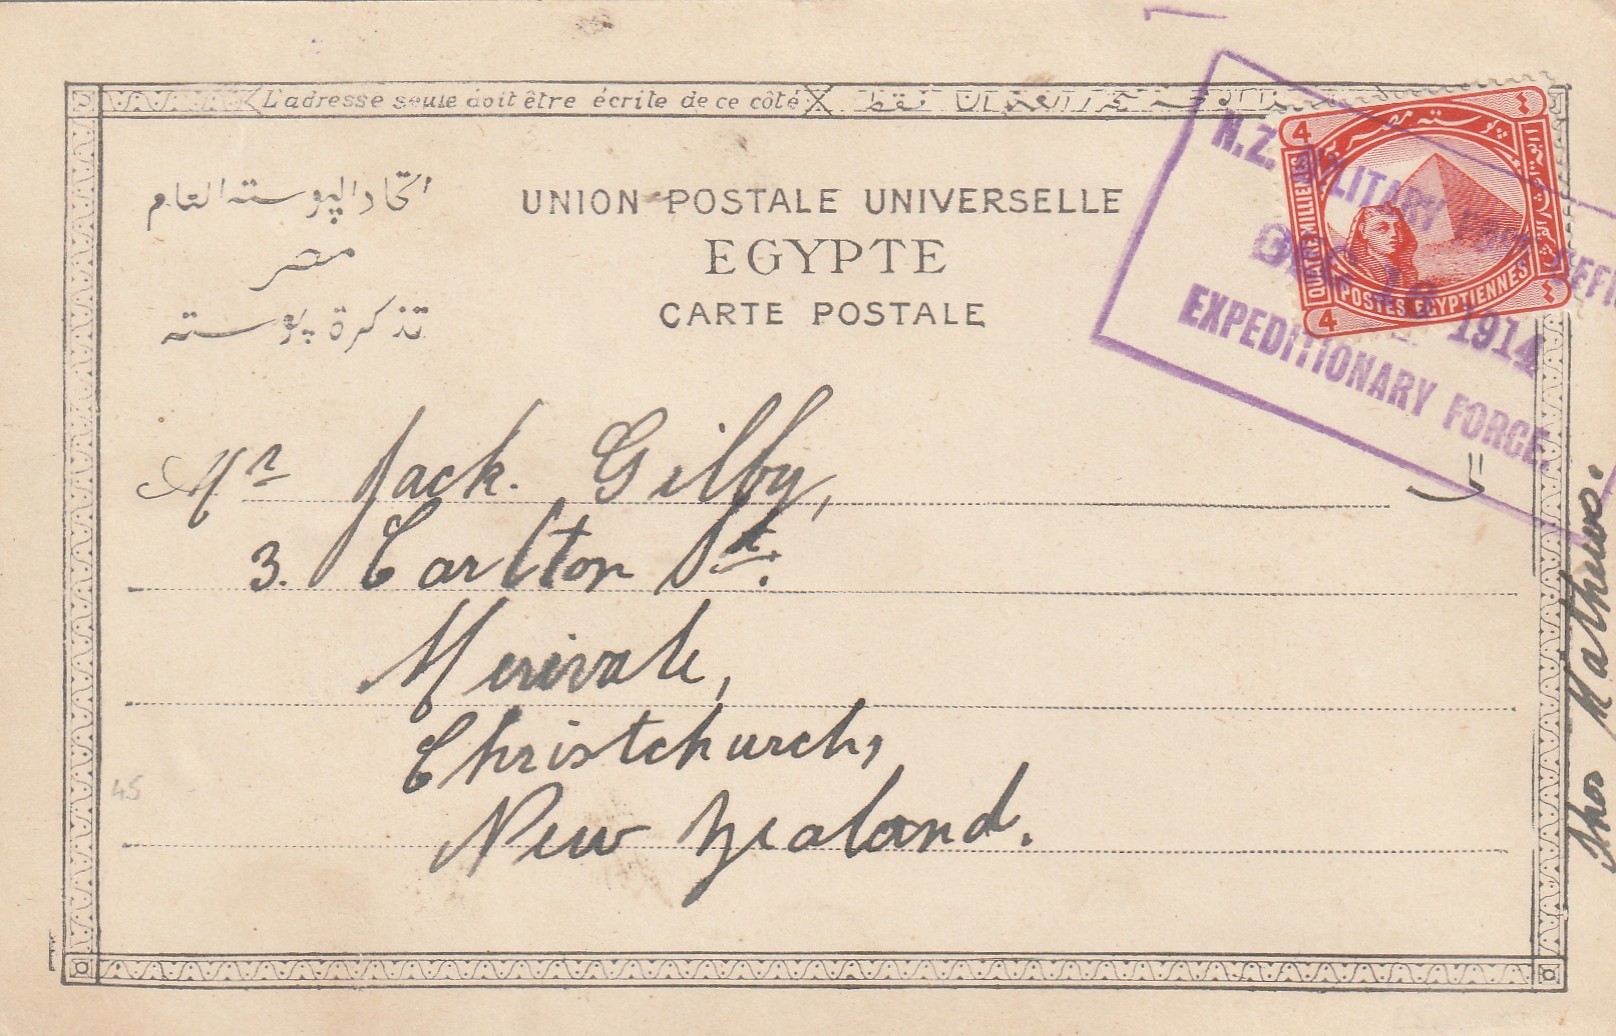 L'adresse seule doit être écrite de ce côté
UNION POSTALE UNIVERSELLE
EGYPTE
CARTE POSTALE
اتحاد البوسته العام
مصر
تذكرة بوسته
بوسته مصريه
4
٤
QUATRE MILLIEMES
POSTES EGYPTIENNES
4
٤
N.Z. MILITARY POST OFFI
DEC 1914
EXPEDITIONARY FORCE.
Mr Jack. Gilby,
3. Carlton St.
Merivale,
Christchurch,
New Zealand.
Thos Mathews.
45